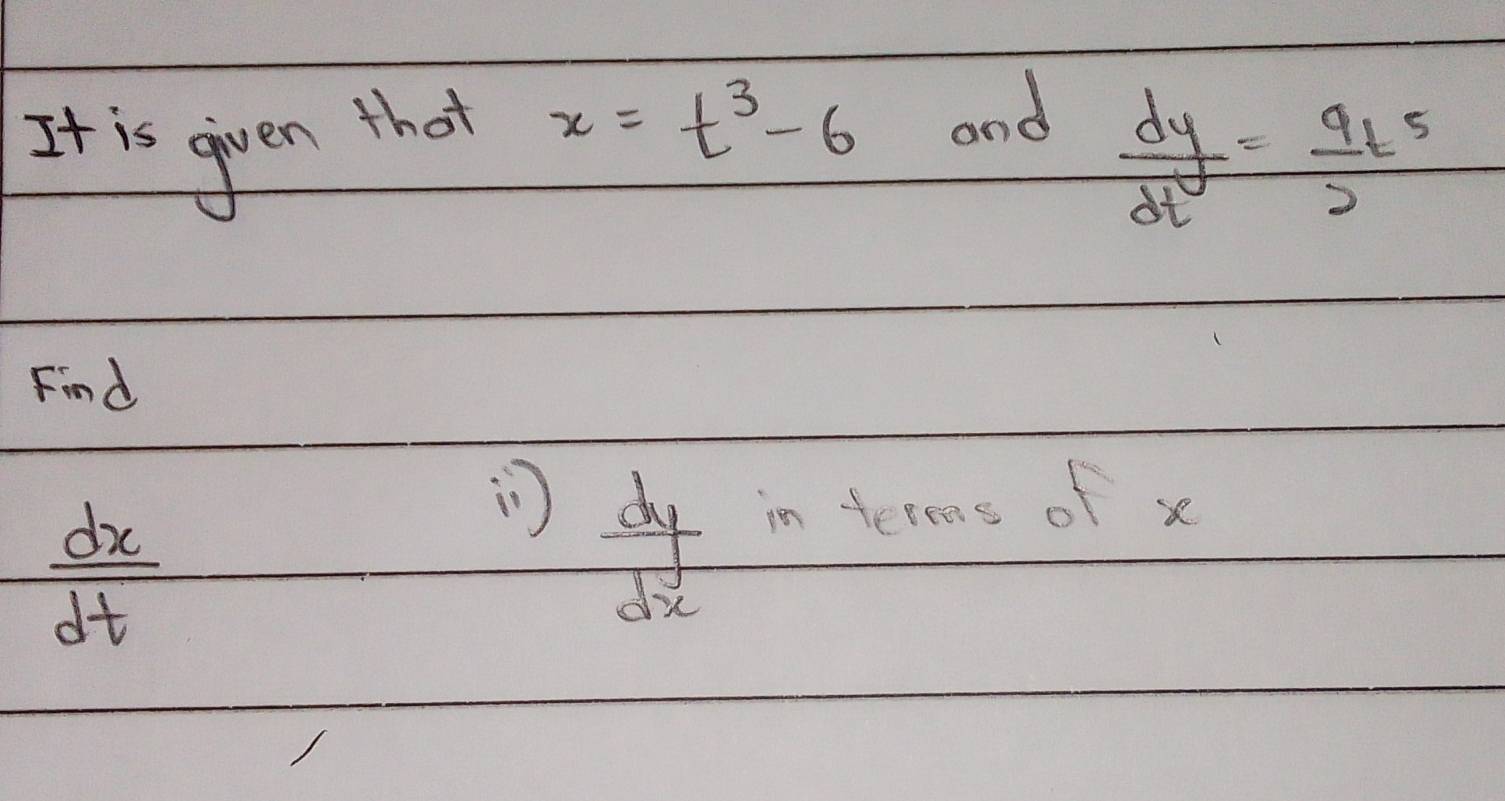 It is given that x = t³ - 6 and dy/dt = 9/2 t⁵
Find
dx/dt ii) dy/dx in terms of x